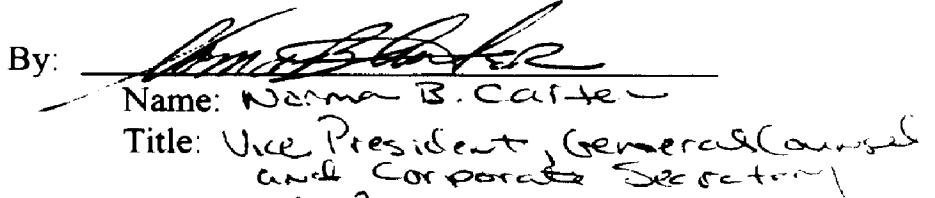 By:
Name: Norma B. Carter
Title: Vice President, General Counsel
and Corporate Secretary